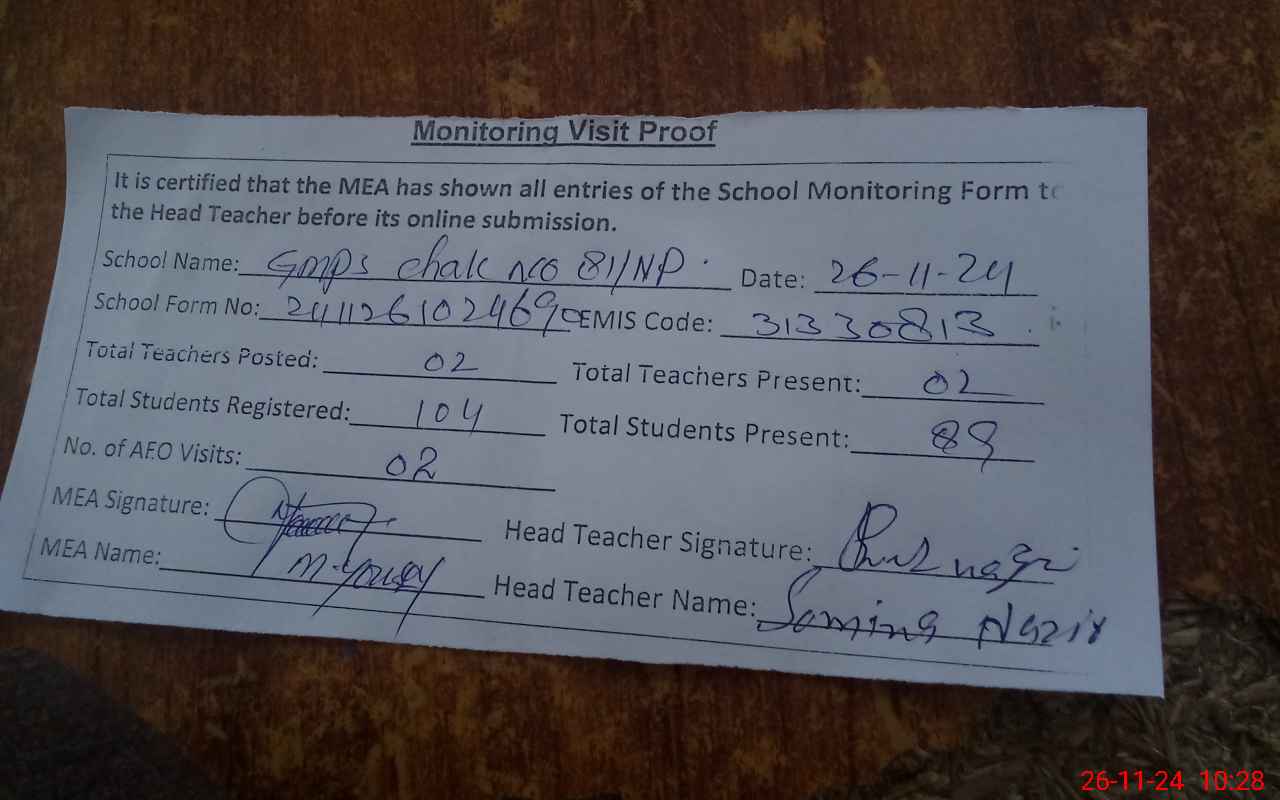 Monitoring Visit Proof
It is certified that the MEA has shown all entries of the School Monitoring Form to
the Head Teacher before its online submission.
School Name: GMPS chak no 81/NP. Date: 26-11-24
School Form No: 241126102469 EMIS Code: 31330813
Total Teachers Posted: 02 Total Teachers Present: 02
Total Students Registered: 104 Total Students Present: 89
No. of AEO Visits: 02
MEA Signature: Head Teacher Signature:
MEA Name: M. Head Teacher Name: Samina Nazir
26-11-24 10:28